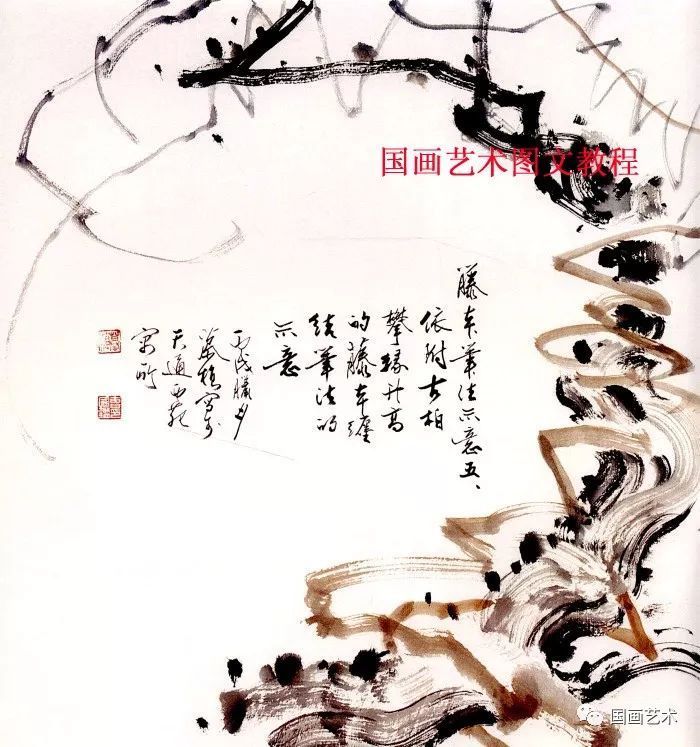 国画艺术图文教程
藤本笔法示意五、
依附古柏
攀缘升高
的藤本缠
结笔法的
示意
丙戌腊月
写于
天通西苑
寓所
国画艺术